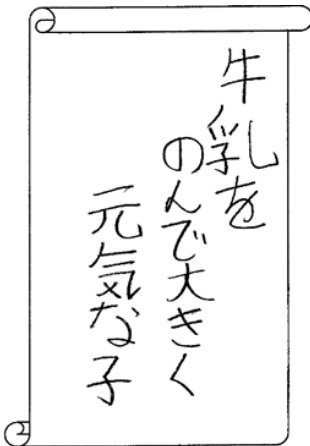 牛乳を
のんで大きく
元気な子